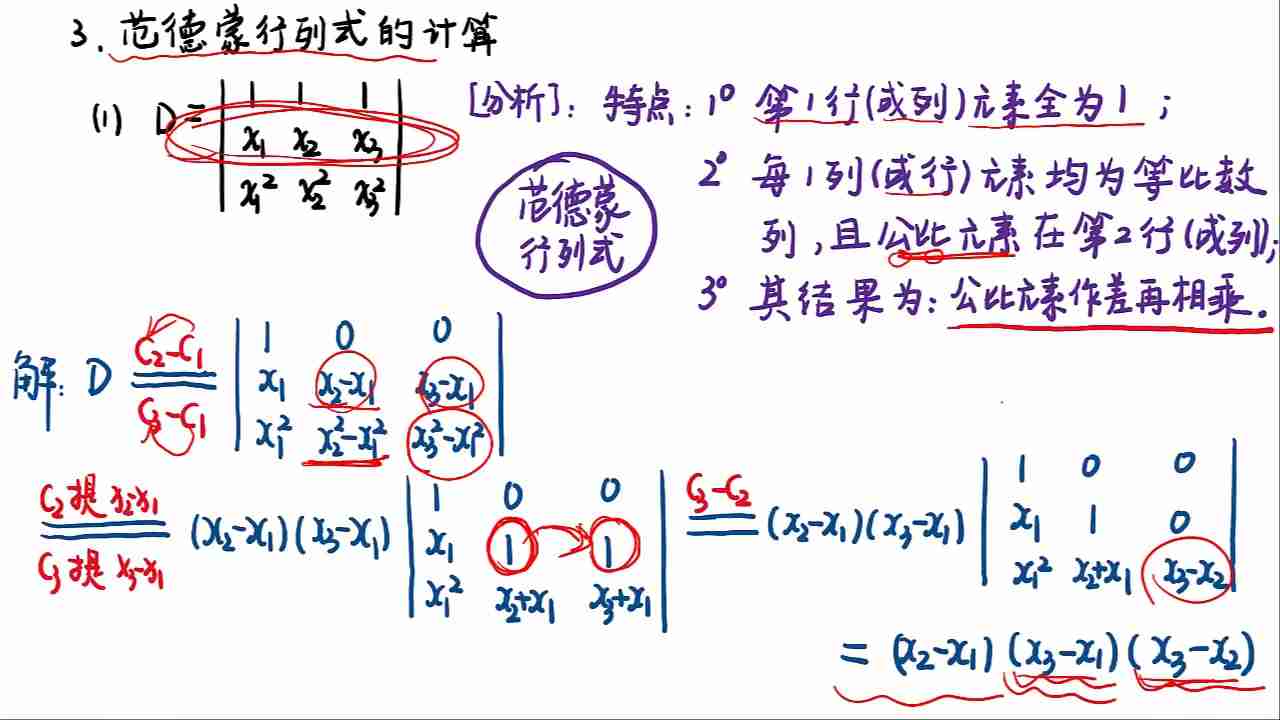 3. 范德蒙行列式的计算
(1) D = | 1 1 1 |
| x₁ x₂ x₃ |
| x₁² x₂² x₃² |
[分析]: 特点: 1° 第1行(或列)元素全为1;
2° 每1列(或行)元素均为等比数
列,且公比元素在第2行(或列);
3° 其结果为:公比元素作差再相乘.
范德蒙
行列式
解: D
C₂-C₁
C₃-C₁
| 1 0 0 |
| x₁ x₂-x₁ x₃-x₁ |
| x₁² x₂²-x₁² x₃²-x₁² |
C₂提 x₂-x₁
C₃提 x₃-x₁
(x₂-x₁)(x₃-x₁)
| 1 0 0 |
| x₁ 1 1 |
| x₁² x₂+x₁ x₃+x₁ |
C₃-C₂
(x₂-x₁)(x₃-x₁)
| 1 0 0 |
| x₁ 1 0 |
| x₁² x₂+x₁ x₃-x₂ |
= (x₂-x₁)(x₃-x₁)(x₃-x₂)